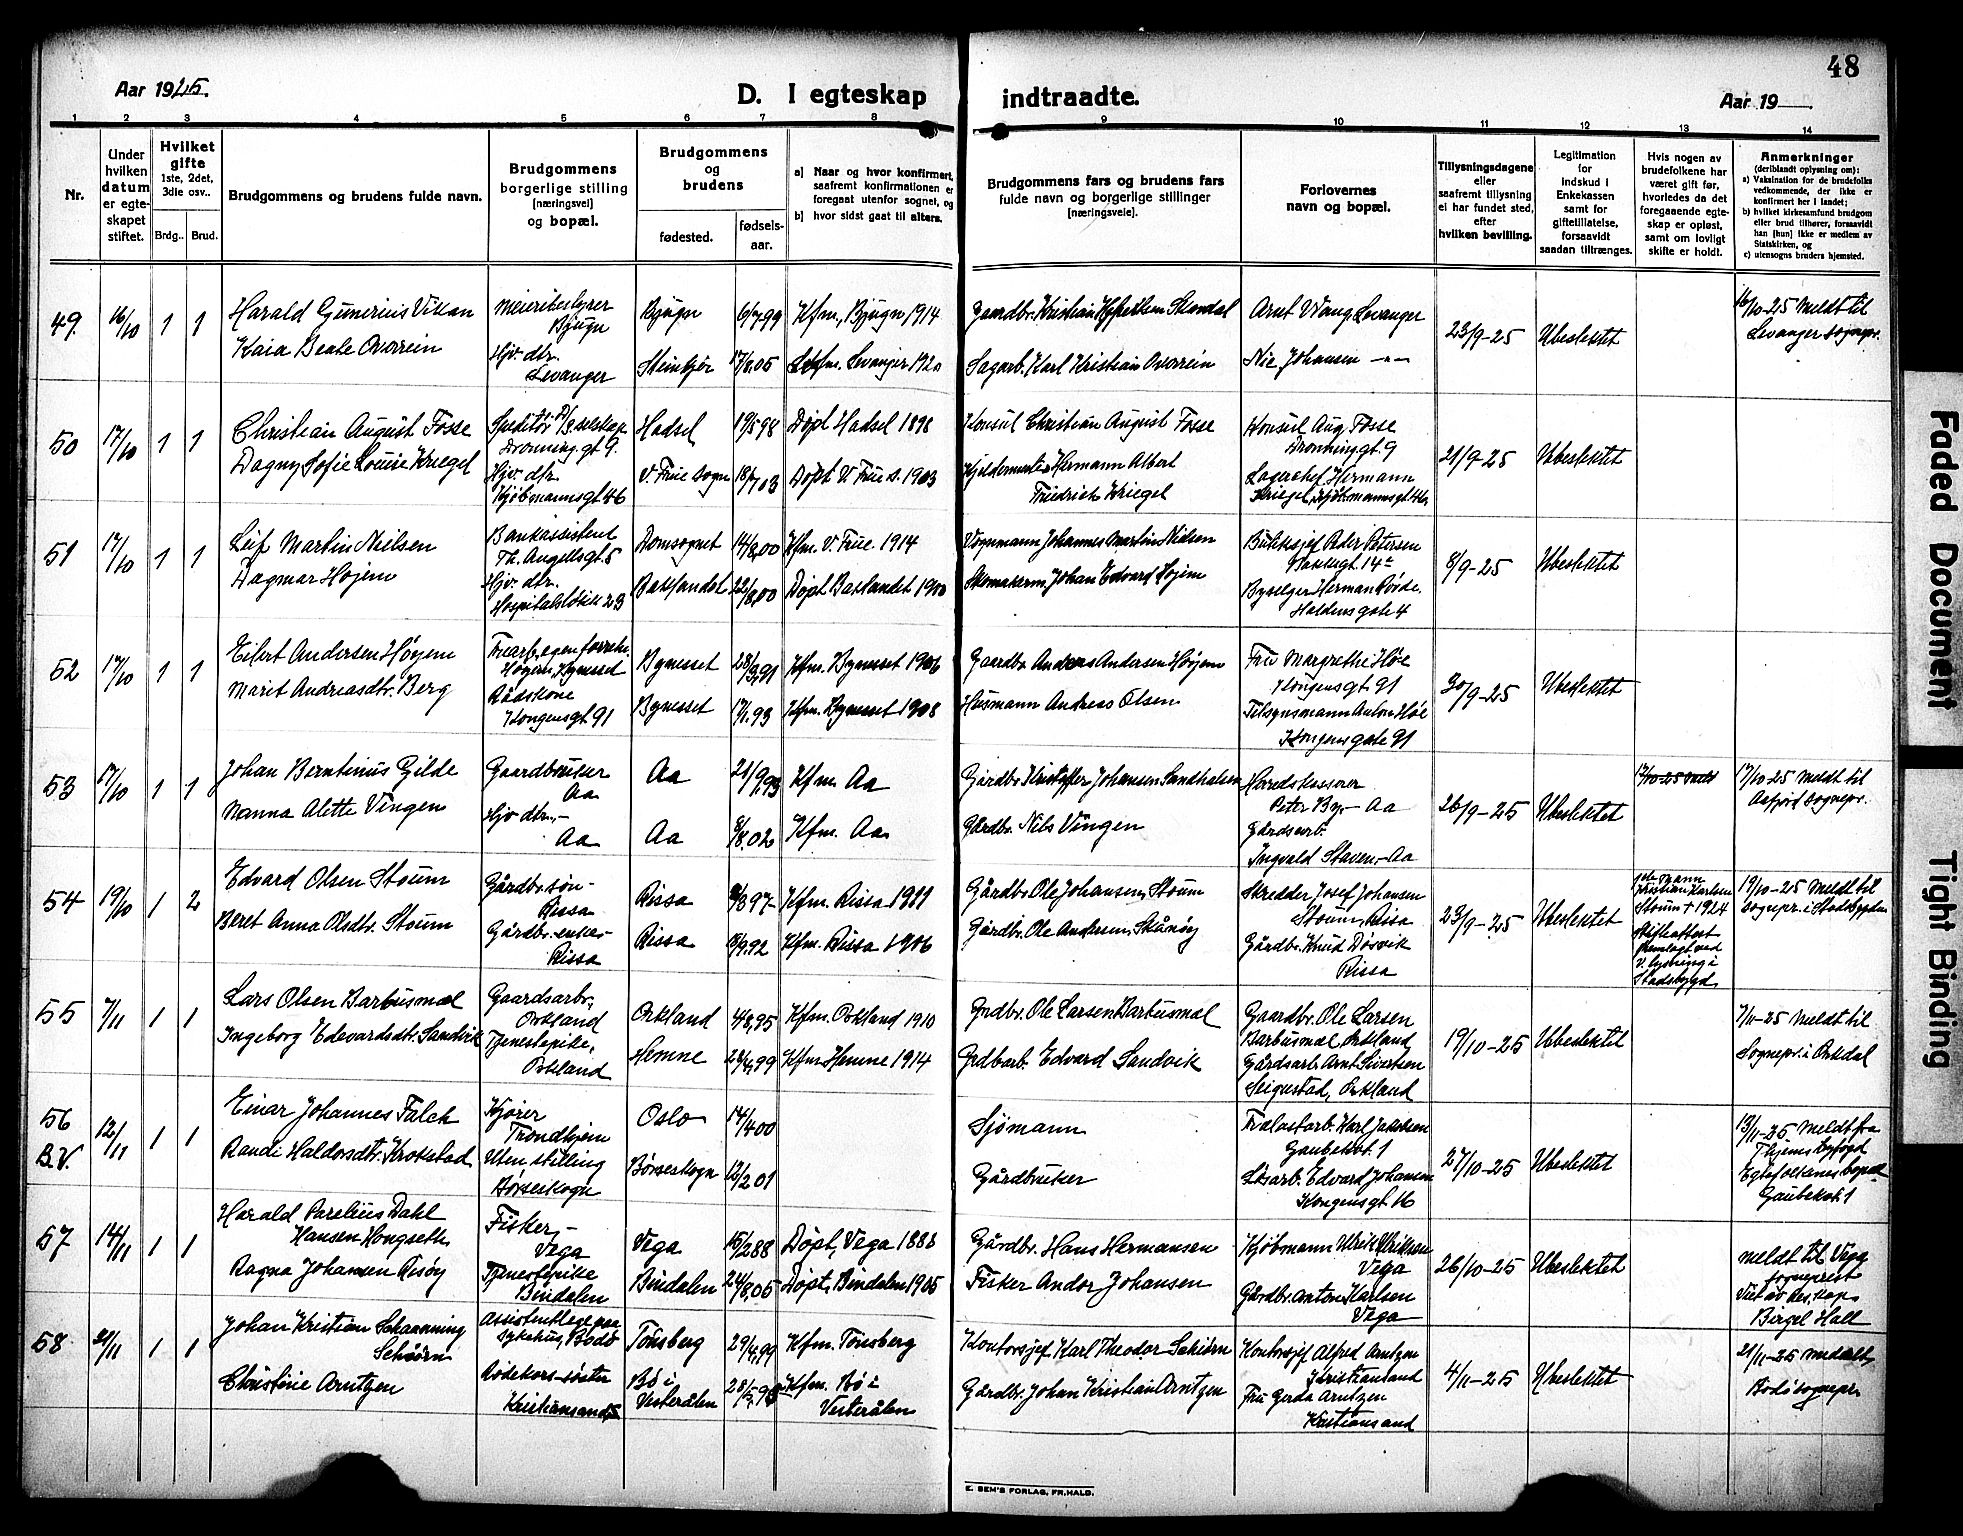 48
Aar 1925.
D. I egteskap
indtraadte.
Aar 19
1 2 3 4 5 6 7 8 9 10 11 12 13 14
Nr.
Under
hvilken
datum
er egte-
skapet
stiftet.
Hvilket
gifte
1ste, 2det,
3die osv..
Brdg.. Brud.
Brudgommens og brudens fulde navn.
Brudgommens
borgerlige stilling
[næringsvei]
og bopæl.
Brudgommens
og
brudens
fødested.
fødsels-
aar.
a) Naar og hvor konfirmert,
saafremt konfirmationen er
foregaat utenfor sognet, og
b) hvor sidst gaat til alters.
Brudgommens fars og brudens fars
fulde navn og borgerlige stillinger
[næringsveie].
Forlovernes
navn og bopæl.
Tillysningsdagene
eller
saafremt tillysning
ei har fundet sted,
efter
hvilken bevilling.
Legitimation
for
indskud i
Enkekassen
samt for
giftetillatelse,
forsaavidt
saadan tiltrænges.
Hvis nogen av
brudefolkene har
været gift før,
hvorledes da det
foregaaende egte-
skap er opløst,
samt om lovligt
skifte er holdt.
Anmerkninger
(deriblandt oplysning om):
a) Vaksination for de brudefolks
vedkommende, der ikke er
konfirmert her i landet;
b) hvilket kirkesamfund brudgom
eller brud tilhører, forsaavidt
han [hun] ikke er medlem av
Statskirken, og
c) utensogns bruders hjemsted.
49. 16/10 1 1
Harald Gunerius Vikan
Kaia Beate Overrein
Meieribestyrer
Bjugn
Hjv. dtr.
Levanger
Bjugn 6/7 99
Steinkjer 17/8 05
Kfm. Bjugn 1914
Kfm. Levanger 1920
Gaardbr. Kristian
Sagarb. Karl Kristian Overrein
Arnt Wang Levanger
Nic Johansen -"-
23/9-25
Ubeslektet
16/10-25 Meldt til
Levanger sognepr.
50 17/10 1 1
Christian August Fosse
Dagny Sofie Louise Kriegel
Speditør
Dronning.gt 9.
Hjv. dtr.
Kjøbmannsgt 46
Hadsel 19/5 98
V. Frue sogn 18/7 03
Døpt Hadsel 1898
Døpt V. Frue s. 1903
Konsul Christian August Fosse
Kjeldermester Hermann Albert
Friedrich Kriegel
Konsul Aug. Fosse
Dronning.gt 9
Lagerchef Hermann
Kriegel, Kjøbmannsgt 46
21/9-25
Ubeslektet
51 17/10 1 1
Leif Martin Nielsen
Dagmar Højem
Bankassistent
Th. Angellsgt. 5
Hjv. dtr.
Hospitalsløkk. 23
Domsognet 14/8 00
Baklandet 22/8 00
Kfm. V. Frue 1914
Døpt Baklandet 1900
Vognmann Johannes Martin Nielsen
Skomakerm. Johan Edvard Højem
Butiksjef Peder Petersen
14
Byselger Herman Rørde.
gate 4
8/9-25
Ubeslektet
52 17/10 1 1
Eilert Andersen Høyem
Marit Andreasdtr. Berg
Høyem, Bynesset
Rådskone
Kongensgt 91
Bynesset 28/3 91
Bynesset 17/1 93
Kfm. Bynesset 1906
Kfm. Bynesset 1908
Gaardbr. Andreas Andersen Høyem
Husmann Andreas Olsen
Fru Margrethe Høe
Kongensgt. 91
Tilsynsmann Anton Høe
Kongensgate 91
30/9-25
Ubeslektet
53 17/10 1 1
Johan Berntinus Gilde
Nanna Alette Vingen
Gaardbruker
Aa
Hjv dtr.-
Aa
Aa 21/9 93
Aa 8/8 02
Kfm. Aa
Kfm. Aa
Gårdbr. Kristoffer Johansen Sandhalsen
Gårdbr. Nils Vingen
Herredskasserer
Peter By.- Aa
Gårdsarb.
Ingvald Staven.- Aa
26/9-25
Ubeslektet
17/10-25 meldt
17/10-25 meldt til
Aafjord sognepr.
54 19/10 1 2
Edvard Olsen Stoum
Beret Anna Olsdtr. Stoum
Gårdbr.søn-
Rissa
Gårdbr.enke-
Rissa
Rissa
Rissa
Kfm. Rissa 1911
Kfm. Rissa 1906
Gårdbr. Ole Johansen, Stoum
Gårdbr. Ole Andersen, Skånøy
Skredder Josef Johansen
Stoum, Rissa
Gårdbr. Knud Dørvik
Rissa
23/9-25
Ubeslektet
Kristian Karlsen
Stoum + 1924
Skifteattest
fremlagt ved
v. lysning i
Stadsbygd
19/10-25 Meldt til
sognepr. i Stadsbygden
55 7/11 1 1
Lars Olsen Barbusmæl
Ingeborg Edevardsdtr. Sandvik
Gaardsarb.,
Orkland
Tjenestepike,
Orkland
Orkland 4/8 95
Hemne 23/4 99
Kfm. Orkland 1910
Kfm. Hemne 1914
Grdbr. Ole Larsen Barbusmæl
Grdbarb. Edvard Sandvik
Gaardbr. Ole Larsen
Barbusmæl, Orkland
Gårdsarb. Arnt Sivertsen
Orkland
19/10-25
Ubeslektet
7/11-25 Meldt til
Sognepr. i Orkdal
56
B.V. 12/11 1 1
Einar Johannes Falch
Randi Haldorsdtr. Krokstad
Kjører
Trondhjem
Uten stilling
Børseskogn
Oslo 14/4 00
Børseskogn 12/2 01
Sjømann
Gårdbruker
Karl Jakobsen
Gaubekvt. 1
Edvard Johansen
Kongensgt. 16
27/10-25
Ubeslektet
13/11-25 Meldt fra
Thjems byfogd
Egtefolkenes bopæl
Gaubekvt. 1
57 14/11 1 1
Harald Parelius Dahl
Hansen Hongseth
Ragna Johansen Risøy
Fisker,-
Vega
Tjenestepike
Bindalen
Vega 15/2 88
Bindalen 24/8 05
Døpt, Vega 1888
Døpt, Bindalen 1905
Gårdbr. Hans Hermansen
Fisker Andor Johansen
Kjøbmann Ulrik Ulriksen
Vega
Gårdbr. Anton Karlsen
Vega
26/10-25
Ubeslektet
Meldt til Vega
sogneprest
Viet av Res.kap.
Birger Hall
58 21/11 1 1
Johan Kristian Schanning
Schiørn
Christine Arntzen
Assistentlege paa
sykehus, Bodø
Rødekors-søster
Kristiansand S
Tønsberg 29/4 99
Bø i
Vesterålen
Kfm. Tønsberg
Kfm. Bø i
Vesterålen
Kontorsjef Karl Theodor Schiørn
Gårdbr. Johan Kristian Arntzen
Kontorsjef Alfred Arntzen
Kristiansand
Fru Gerda Arntzen
Kristiansand
4/11-25
Ubeslektet
21/11-25 meldt
Bodø sognepr.
E. SEM'S FORLAG, FR.HALD.
Faded Document
Tight Binding